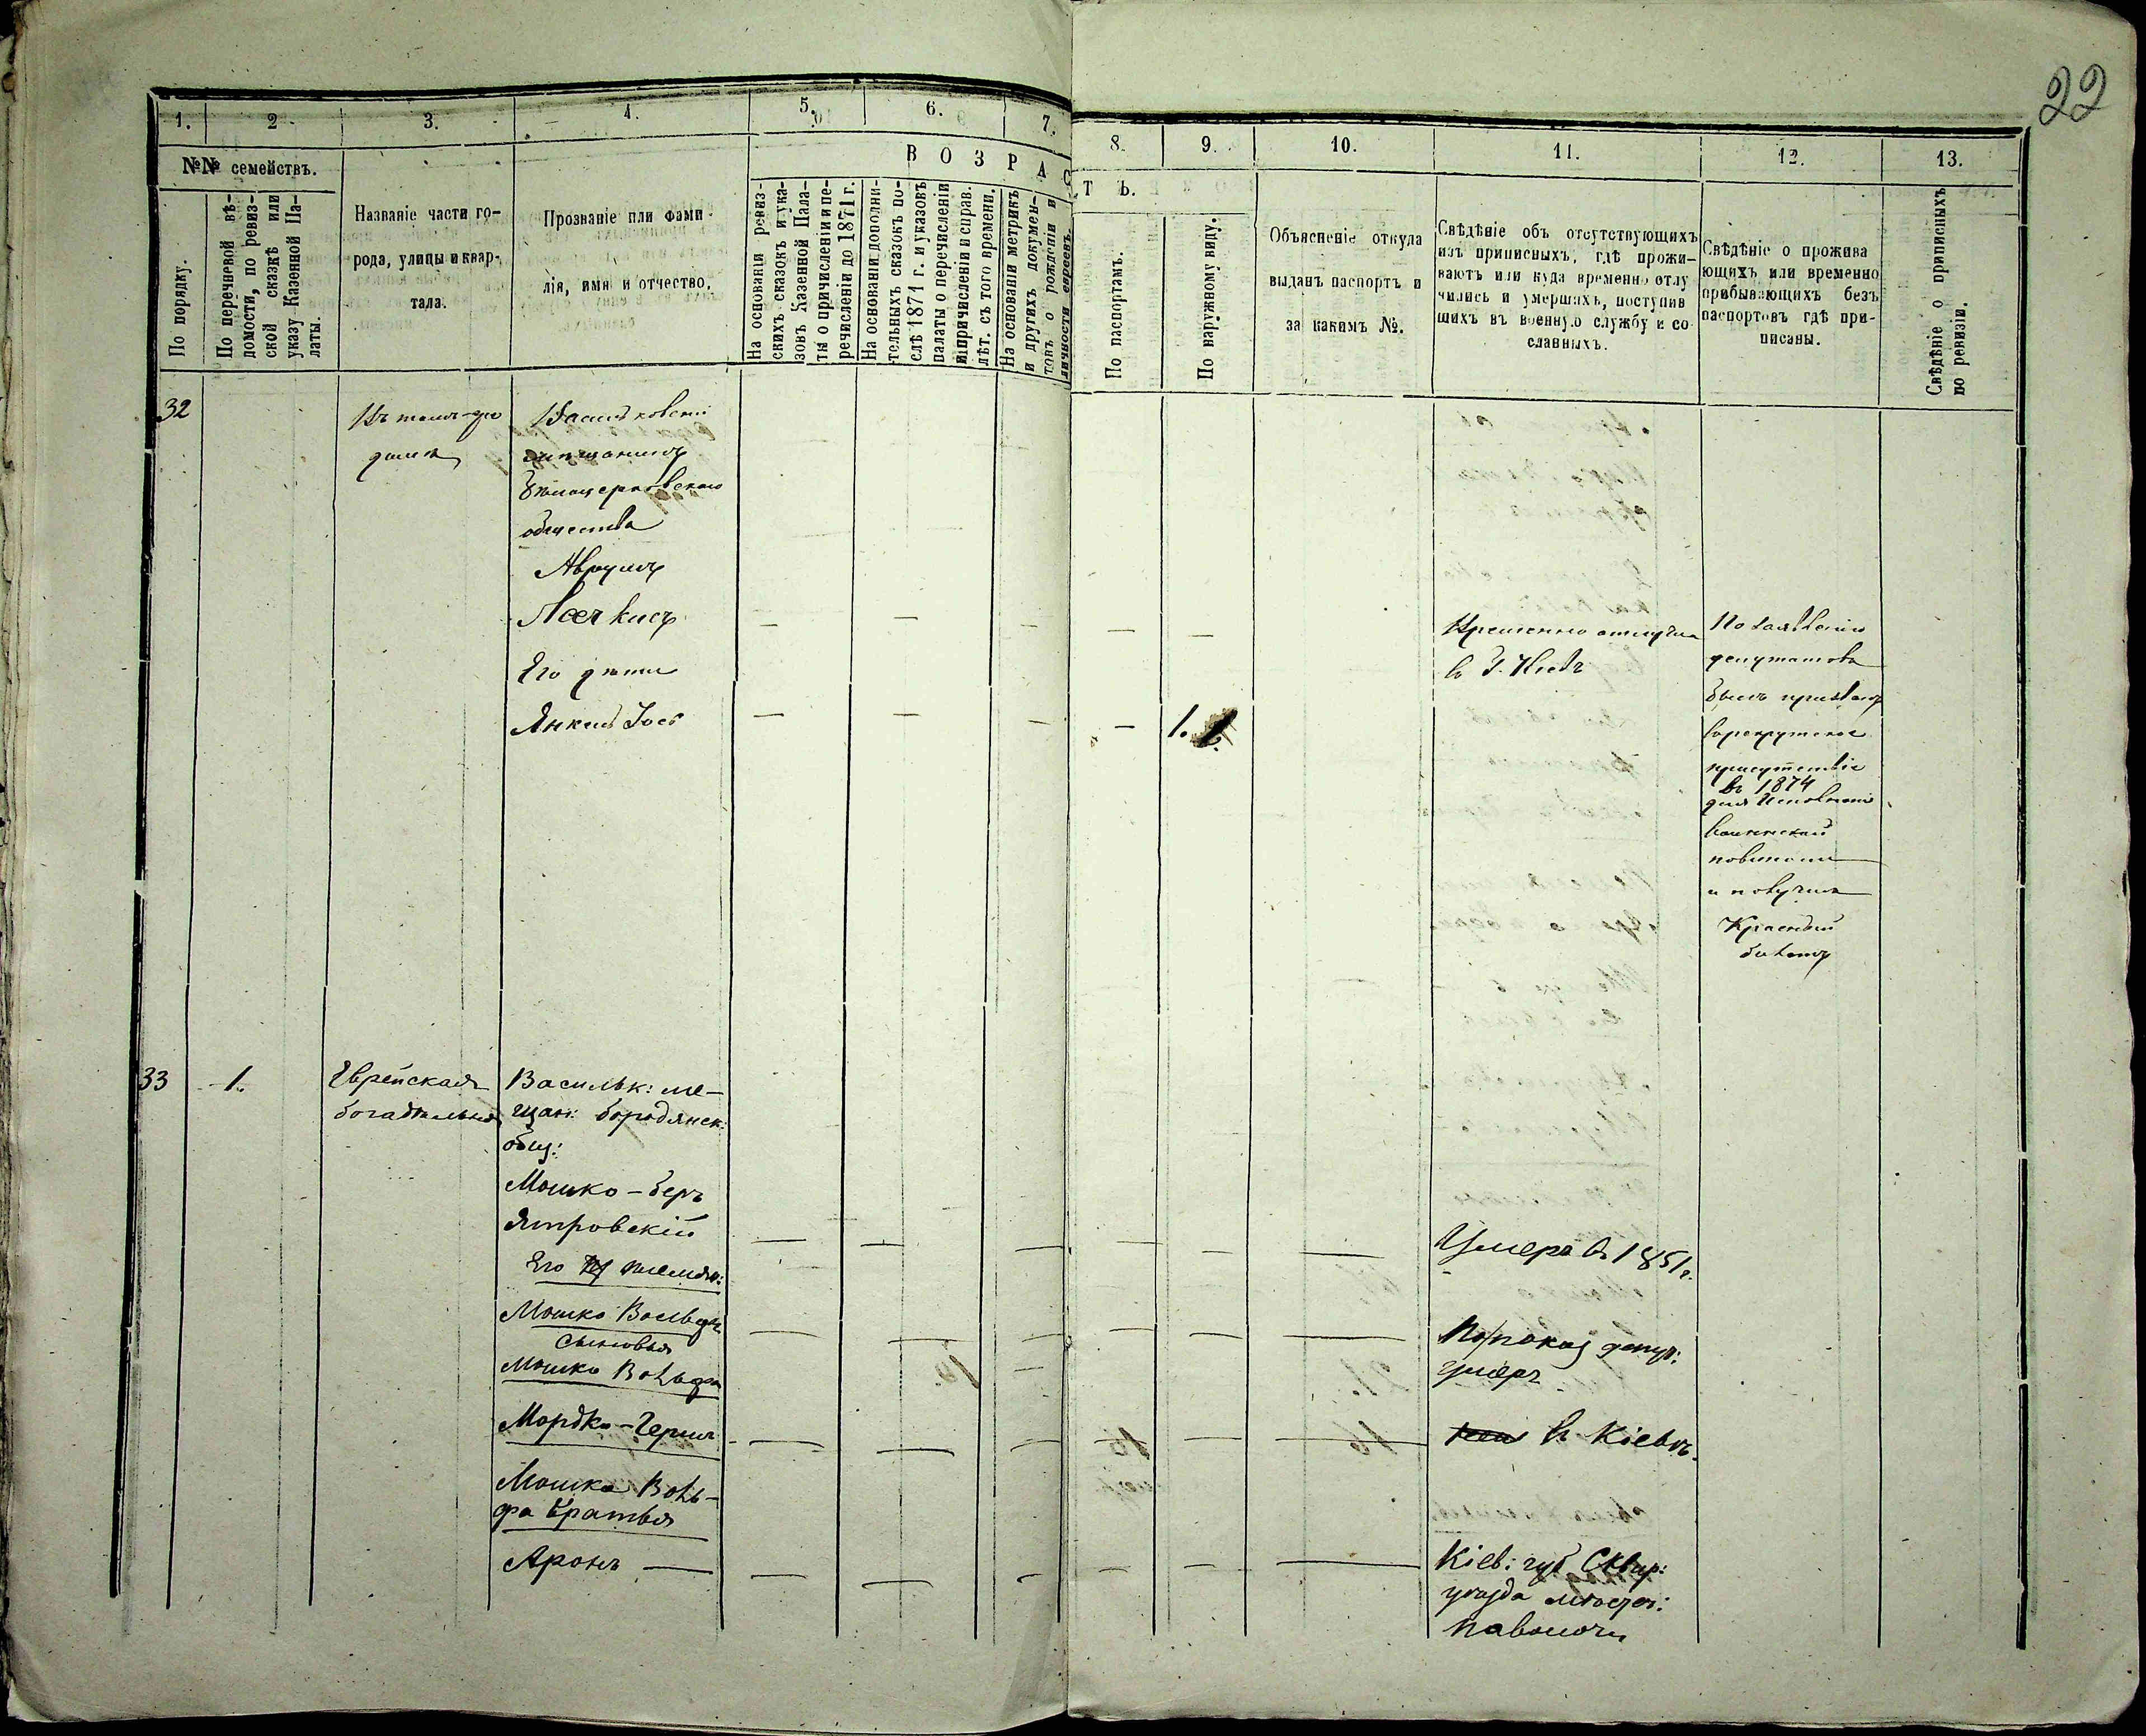 22
1.
2.
3.
4.
5.
6.
7.
8.
9.
10.
11.
12.
13.
№№ семействъ.
По порядку.
По перечневой вѣ-
домости, по ревиз-
ской сказкѣ или
указу Казенной Па-
латы.
Названіе части го-
рода, улицы и квар-
тала.
Прозваніе или фами-
лія, имя и отчество.
ВОЗРАСТЪ.
На основаніи ревиз-
скихъ сказокъ и ука-
зовъ Казенной Пала-
ты о причисленіи и пе-
речисленіи до 1871 г.
На основаніи дополни-
тельныхъ сказокъ по-
слѣ 1871 г. и указовъ
палаты о перечисленіи
и причисленіи и справ.
лѣт. съ того времени.
На основаніи метрикъ
и другихъ докумен-
товъ о рожденіи и
личности евреевъ.
По паспортамъ.
По наружному виду.
Объясненіе откуда
выданъ паспортъ и
за какимъ №.
Свѣдѣніе объ отсутствующихъ
изъ приписныхъ, гдѣ прожи-
ваютъ или куда временно отлу
чились и умершихъ, поступив
шихъ въ военную службу и со
сланныхъ.
Свѣдѣніе о прожива
ющихъ или временно
прибывающихъ безъ
паспортовъ гдѣ при-
писаны.
Свѣдѣніе о приписныхъ
по ревизіи.
32
Въ томъ-же
домѣ
Васильковскій
мѣщанинъ
Бѣлоцерковскаго
общества
Аврумъ
Его дѣти
Янкель Іось
1.
Временно отлучил
в Г. Кіевъ
По заявленію
депутатовъ
былъ призванъ
в рекрутское
присутствіе
въ 1874
для Исполненія
воинской
повинности
и получилъ
Красный
билетъ
33
1.
Еврейская
богадѣльня
Васильк: мѣ-
щан: бородянск:
общ:
Мошко-беръ
Ятровскій
Его племян:
Мошко Вольфъ
сыновья
Мошко Вольфа
Мордко-Герш
Мошка Воль-
фа братья
Аронъ
Умеръ въ 1851 г.
По показ депут:
умеръ
въ Кіевѣ.
Кіев: губ Сквир:
уѣзда мѣстеч:
Паволочи